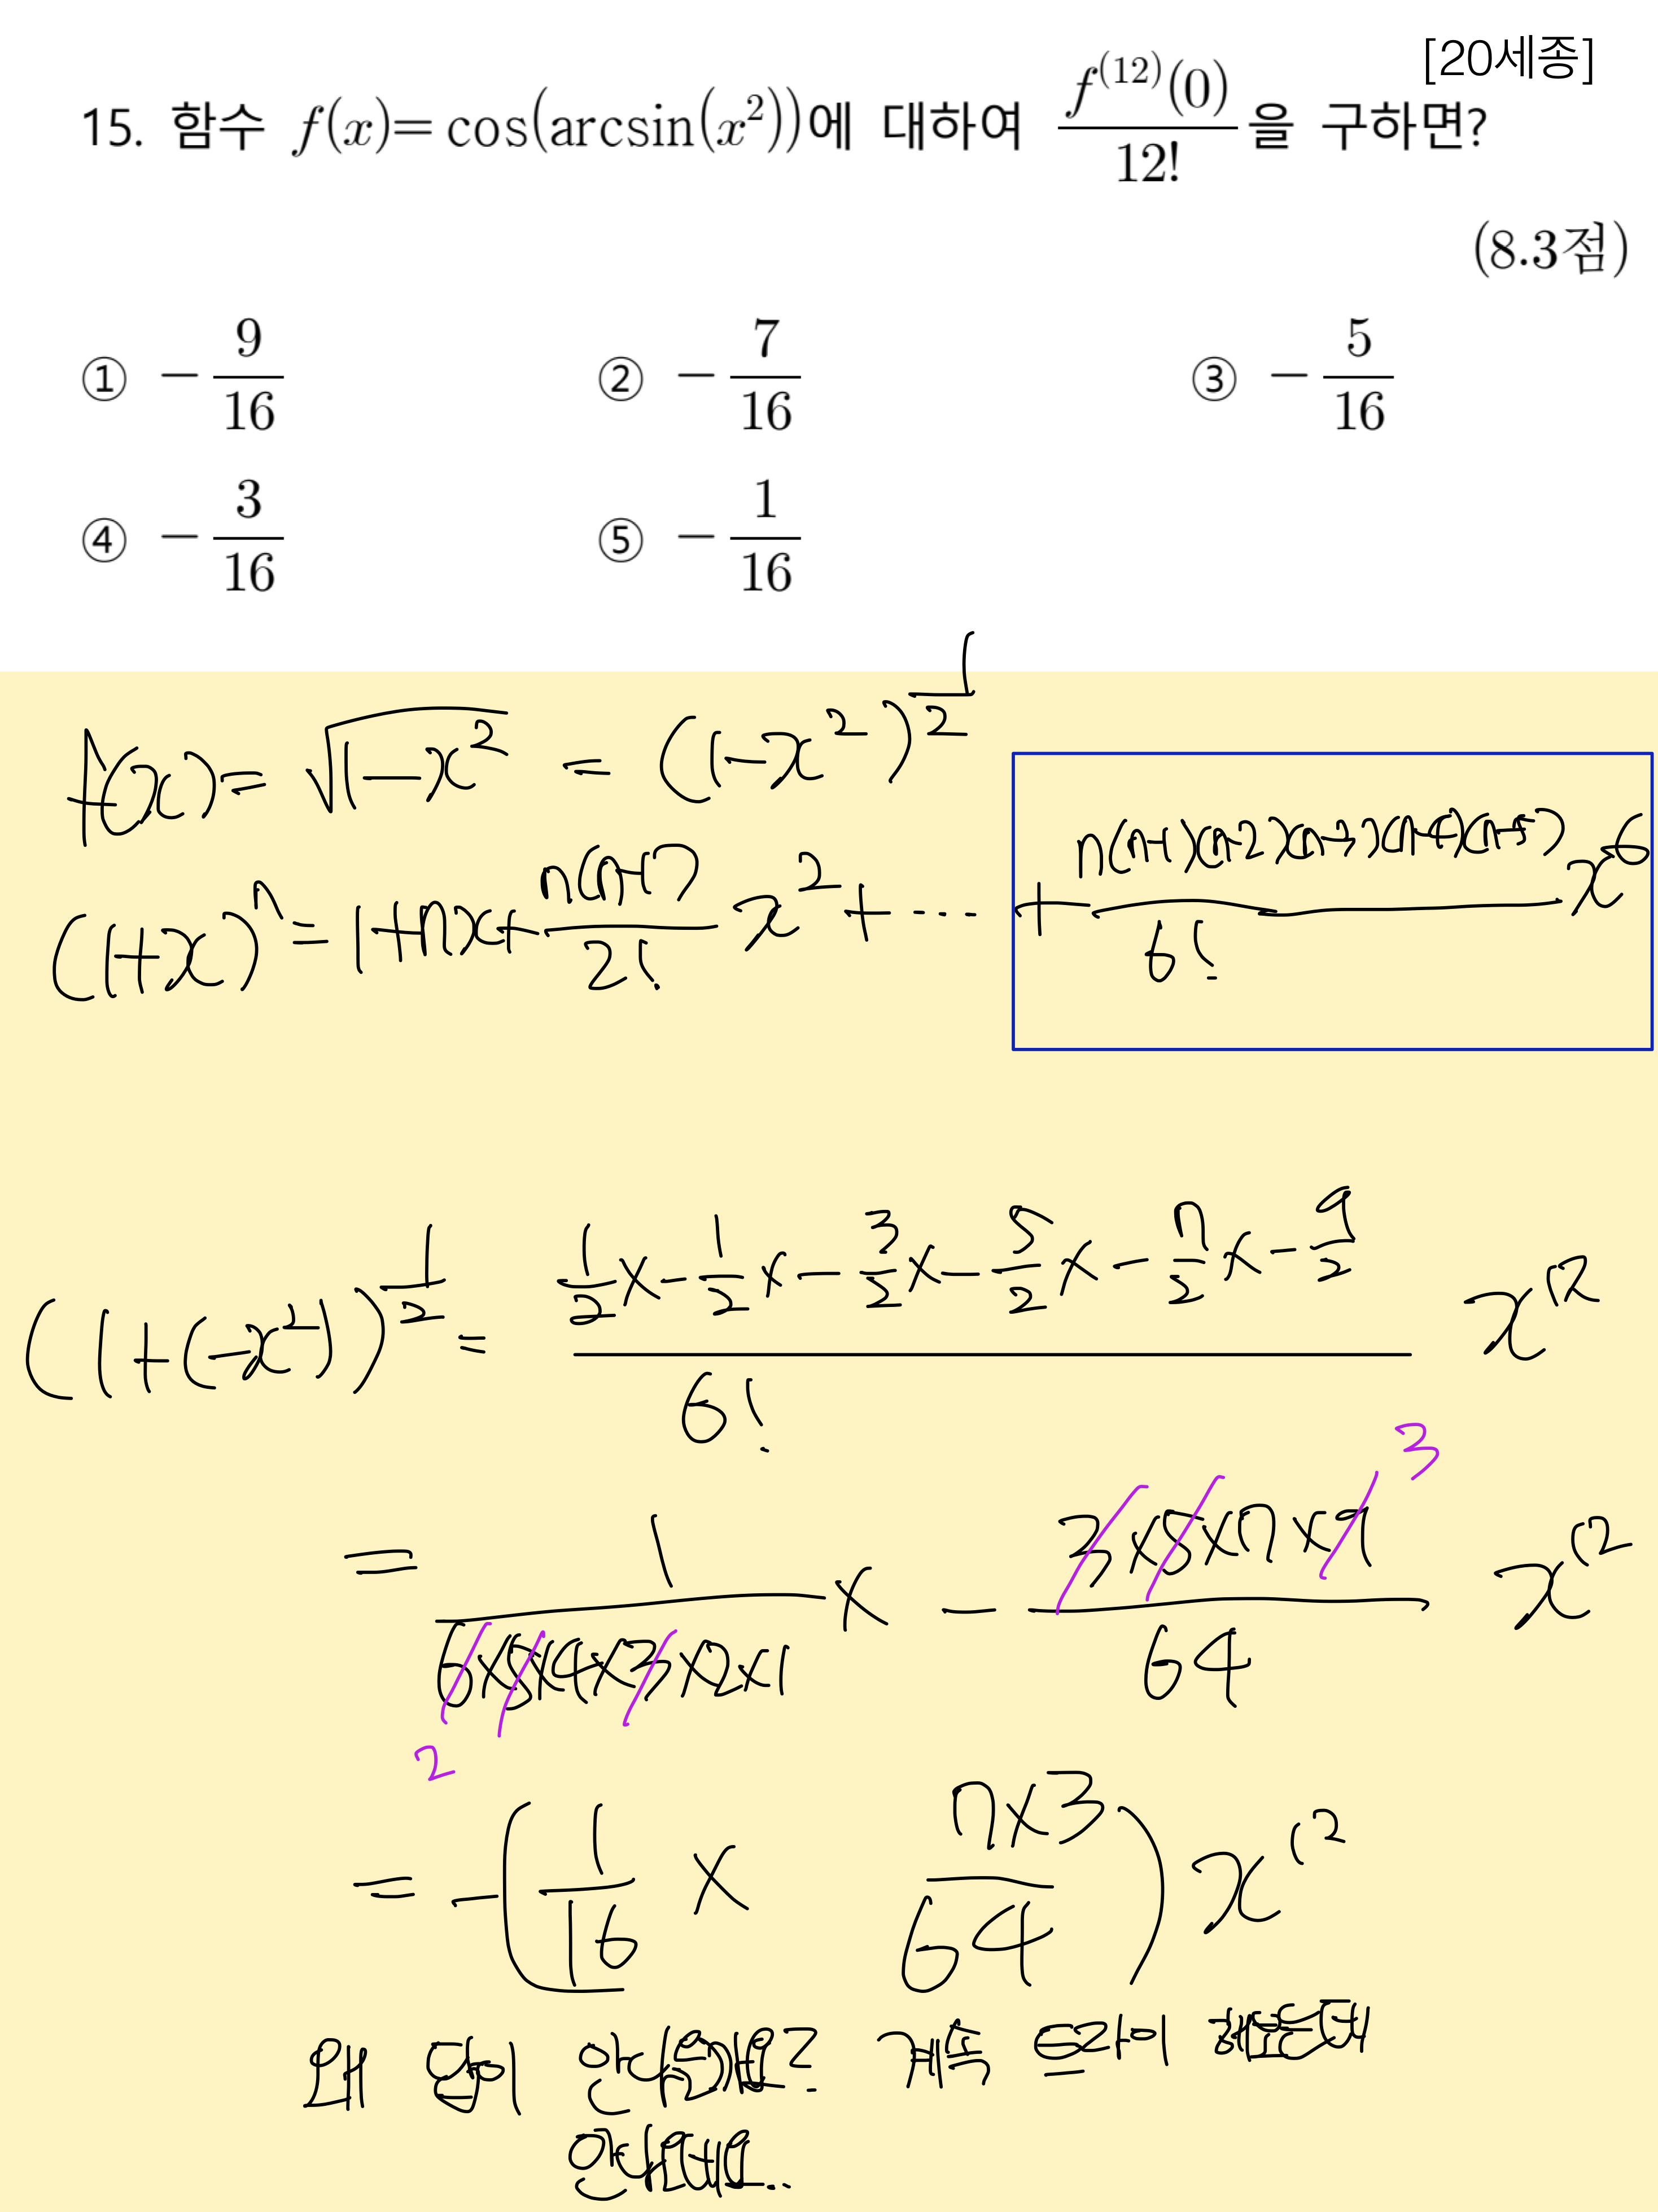 [20세종]
15. 함수 f(x)=cos(arcsin(x²))에 대하여 f⁽¹²⁾(0)/12! 을 구하면?
(8.3점)
① -9/16 ② -7/16 ③ -5/16
④ -3/16 ⑤ -1/16
f(x)= √(1-x²) = (1-x²)^(1/2)
(1+x)^n = 1+nx+ n(n-1)/2! x² + ··· + n(n-1)(n-2)(n-3)(n-4)(n-5)/6! x⁶
(1+(-x²))^(1/2) = (1/2 × -1/2 × -3/2 × -5/2 × -7/2 × -9/2)/6! x¹²
= 1/(6×5×4×3×2×1) × - (3×5×7×9)/64 x¹²
2 3
= -(1/16 × (7×3)/64) x¹²
왜 답이 안나올까요? 계속 계산
안나와요..